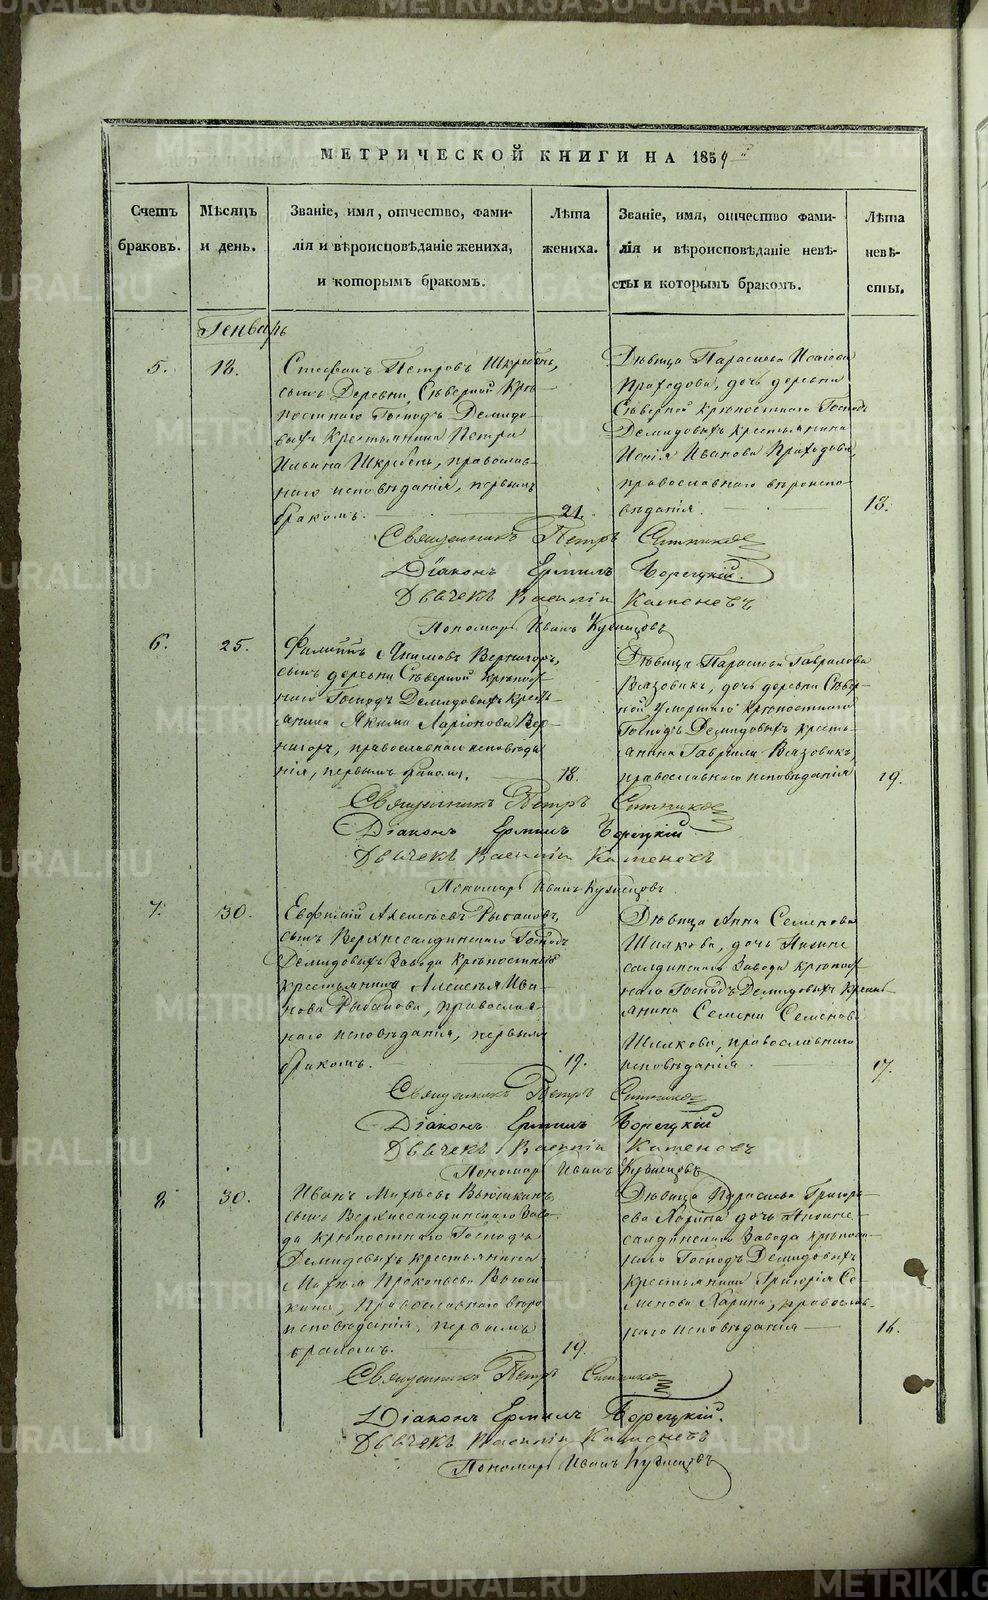 МЕТРИЧЕСКОЙ КНИГИ НА 1854
Счетъ браковъ.
Мѣсяцъ и день.
Званіе, имя, отчество, фами-
лія и вѣроисповѣданіе жениха,
и которымъ бракомъ.
Лѣта жениха.
Званіе, имя, отчество фами-
лія и вѣроисповѣданіе невѣ-
сты и которымъ бракомъ.
Лѣта невѣ-
сты.
Генварь
5.
18.
Стефанъ Петровъ Шкребень,
сынъ Деревни Сѣверной Крѣ-
постнаго Господъ Демидо-
выхъ Крестьянина Петра
Ильина Шкребень, православ-
наго исповѣданія, первымъ
бракомъ.
21.
Дѣвица Параскева Исаіева
Проходова, дочь деревни
Сѣверной крѣпостнаго Господъ
Демидовыхъ крестьянина
Исаія Иванова Проходова,
православнаго вѣроиспо-
вѣданія.
18.
Священникъ Петръ Ситников
Діаконъ Ермилъ Борецкій.
Дьячекъ Василій Каменевъ
Пономарь Иванъ Кузнецовъ
6.
25.
Филиппъ Якимовъ Вернигоръ,
сынъ деревни Сѣверной крѣпост-
наго Господъ Демидовыхъ кресть-
янина Якима Ларіонова Вер-
нигоръ, православнаго исповѣда
нія, первымъ бракомъ.
18.
Дѣвица Параскева Гаврилова
Вязовикъ, дочь деревни Сѣвер-
ной умершаго крѣпостнаго
Господъ Демидовыхъ кресть-
янина Гавриила Вязовикъ,
православнаго исповѣданія
19.
Священникъ Петръ Ситников
Діаконъ Ермилъ Борецкій
Дьячекъ Василій Каменевъ
Пономарь Иванъ Кузнецовъ
7.
30.
Евфимій Алексѣевъ Рыбаковъ,
сынъ Верхнесалдинскаго Господъ
Демидовыхъ Завода Крѣпостнаго
крестьянина Алексѣя Ива-
нова Рыбакова, православ-
наго исповѣданія, первымъ
бракомъ.
19.
Дѣвица Анна Семенова
Шилкова, дочь Нижне
салдинскаго Завода крѣпост-
наго Господъ Демидовыхъ Кресть-
янина Семена Семенова
Шилкова, православнаго
исповѣданія.
17.
Священникъ Петръ Ситников
Діаконъ Ермилъ Борецкій
Дьячекъ Василій Каменевъ
Пономарь Иванъ Кузнецовъ
8
30.
Иванъ Михѣевъ Вьюшкинъ,
сынъ Верхнесалдинскаго Заво-
да крѣпостнаго Господъ
Демидовыхъ крестьянина
Михѣя Прокопьева Вьюш-
кина, Православнаго вѣро
исповѣданія, первымъ
бракомъ.
19.
Дѣвица Параскева Григорь-
ева Ларина дочь Нижне-
салдинскаго Завода крѣпост-
наго Господъ Демидовыхъ
крестьянина Григорія Се-
менова Ларина, православ-
наго исповѣданія
16.
Священникъ Петръ Ситников
Діаконъ Ермилъ Борецкій.
Дьячекъ Василій Каменевъ
Пономарь Иванъ Кузнецовъ
METRIKI.GASO-URAL.RU